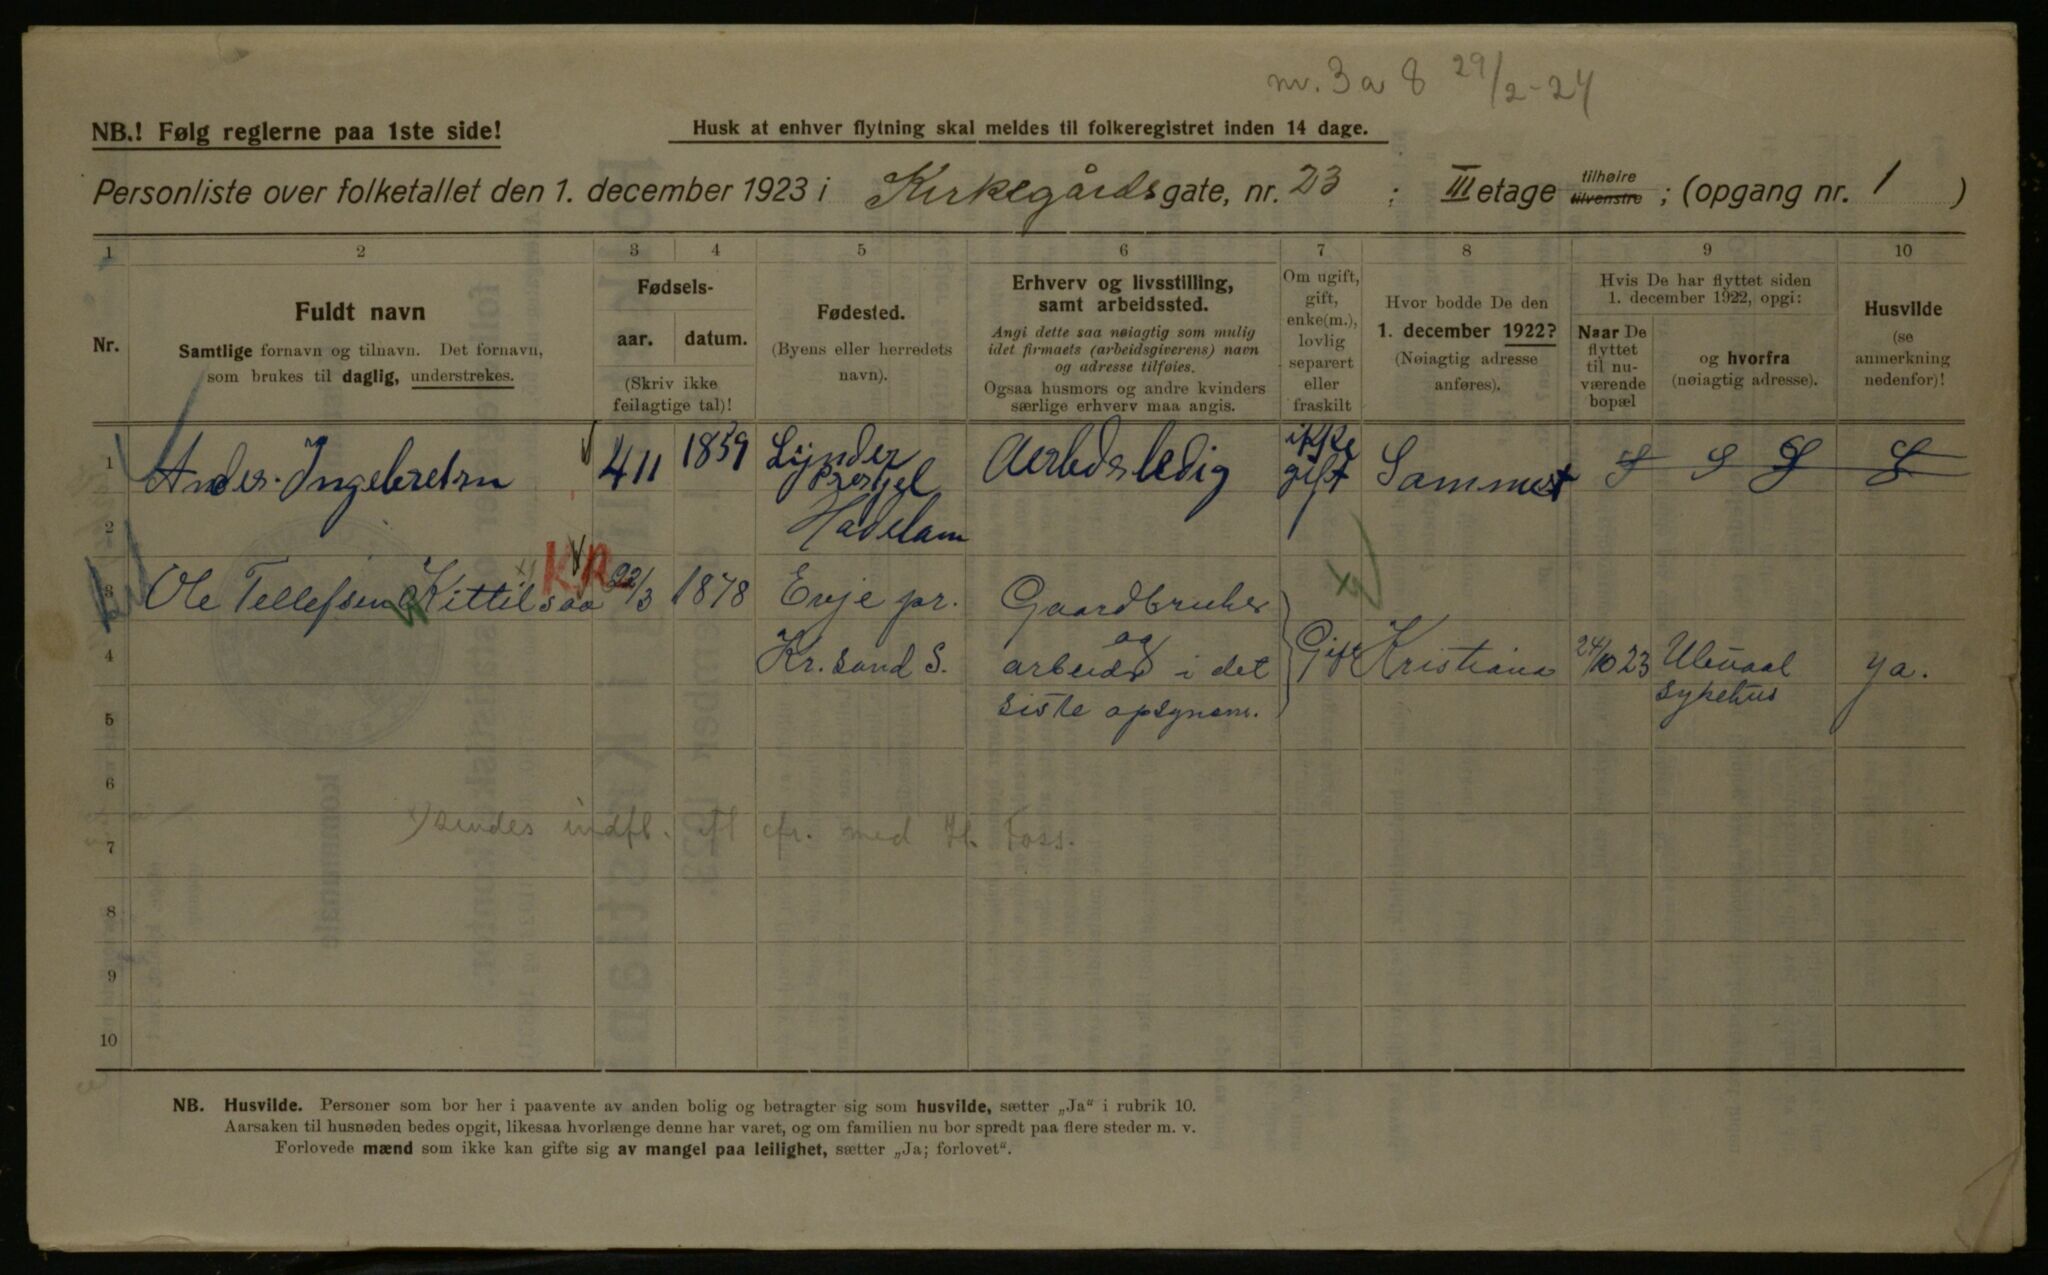 nr. 3 a 8 29/2-24
NB.! Følg reglerne paa 1ste side!
Husk at enhver flytning skal meldes til folkeregistret inden 14 dage.
Personliste over folketallet den 1. december 1923 i Kirkegårdsgate, nr. 23 ; III etage tilhøire tilvenstre ; (opgang nr. 1 )
1 2 3 4 5 6 7 8 9 10
Nr.
Fuldt navn
Samtlige fornavn og tilnavn. Det fornavn,
som brukes til daglig, understrekes.
Fødsels-
aar. datum.
(Skriv ikke
feilagtige tal)!
Fødested.
(Byens eller herredets
navn).
Erhverv og livsstilling,
samt arbeidssted.
Angi dette saa nøiagtig som mulig
idet firmaets (arbeidsgiverens) navn
og adresse tilføies.
Ogsaa husmors og andre kvinders
særlige erhverv maa angis.
Om ugift,
gift,
enke(m.),
lovlig
separert
eller
fraskilt
Hvor bodde De den
1. december 1922?
(Nøiagtig adresse
anføres).
Hvis De har flyttet siden
1. december 1922, opgi:
Naar De
flyttet
til nu-
værende
bopæl
og hvorfra
(nøiagtig adresse).
Husvilde
(se
anmerkning
nedenfor)!
1 Anders Ingebretsn 4 11 1859 Lynder Aerbedsledig ikke gift Sammest
Prestjel
2 Hadelam
3 Ole Tellefsen Kittilsaa KR 22/3 1878 Evje pr. Gaardbruker
og
4 Kr.sand S. arbeider i det Gift Kristiana 24/10 23 Ulevaal ya.
5 siste opsynsm. sykehus
6
x) sendes indfl. ifl cfr. med H. Foss.
7
8
9
10
NB. Husvilde. Personer som bor her i paavente av anden bolig og betragter sig som husvilde, sætter „Ja“ i rubrik 10.
Aarsaken til husnøden bedes opgit, likesaa hvorlænge denne har varet, og om familien nu bor spredt paa flere steder m. v.
Forlovede mænd som ikke kan gifte sig av mangel paa leilighet, sætter „Ja; forlovet“.